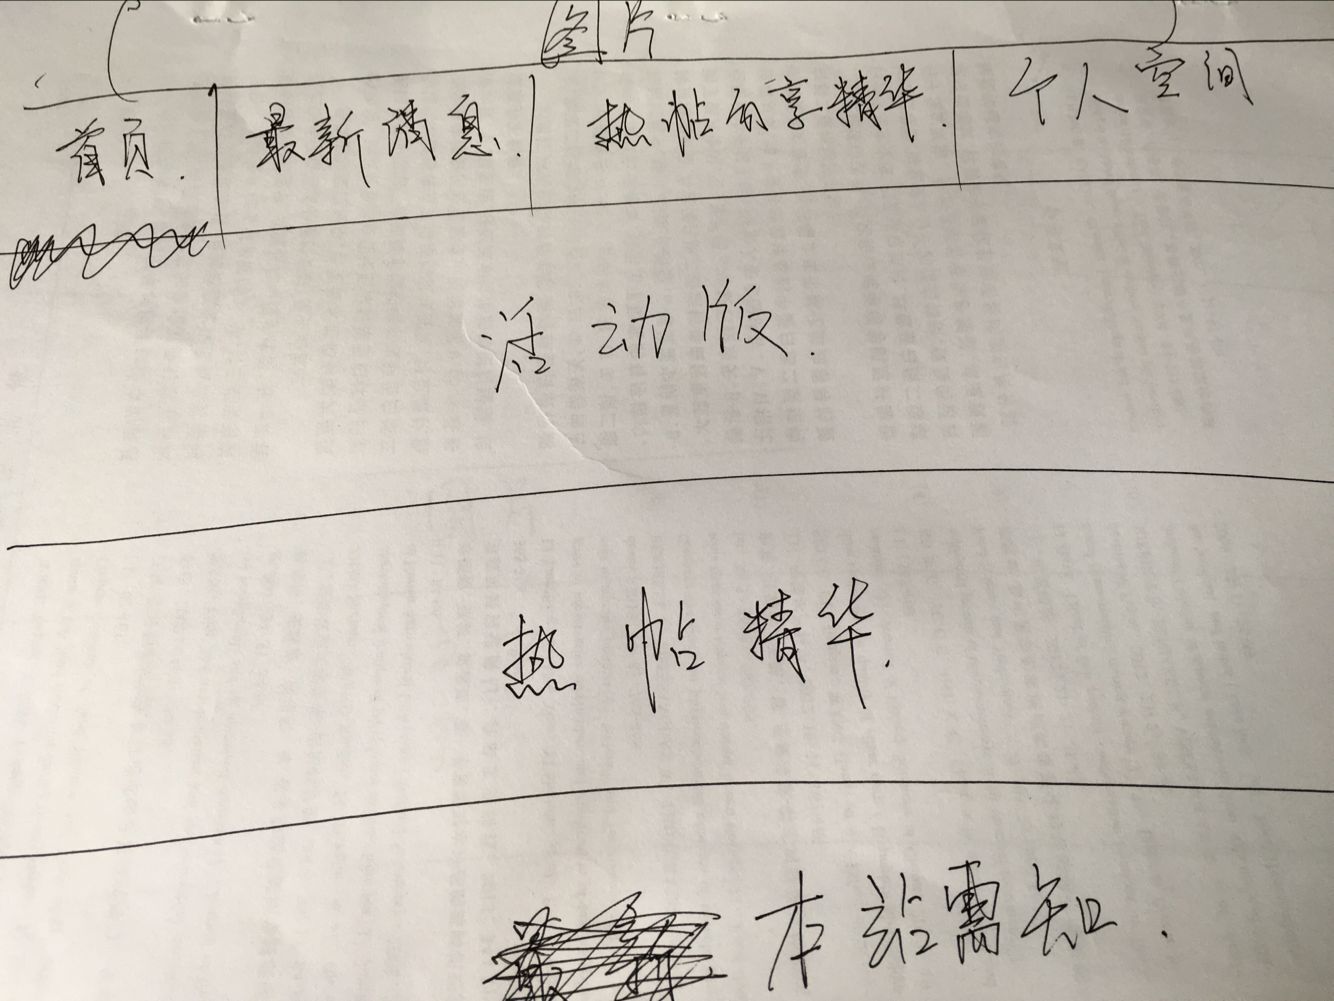 图片
首页. 最新消息. 热帖分享精华. 个人空间
活动版.
热帖精华.
本站需知.